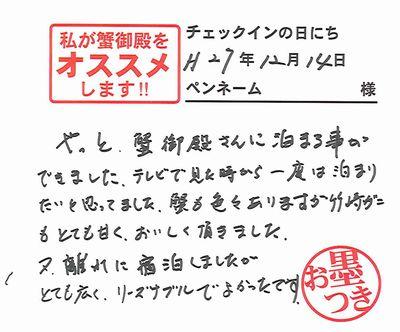 私が蟹御殿を
オススメ
します!!
チェックインの日にち
H27年12月14日
ペンネーム 様
やっと、蟹御殿さんに泊まる事が
できました、テレビで見た時から一度は泊まり
たいと思ってました、蟹も色々ありますが竹崎がニ
もとても甘く、おいしく頂きました、
又、離れに宿泊しましたが
とても広く、リーズナブルでよかったです
お墨つき